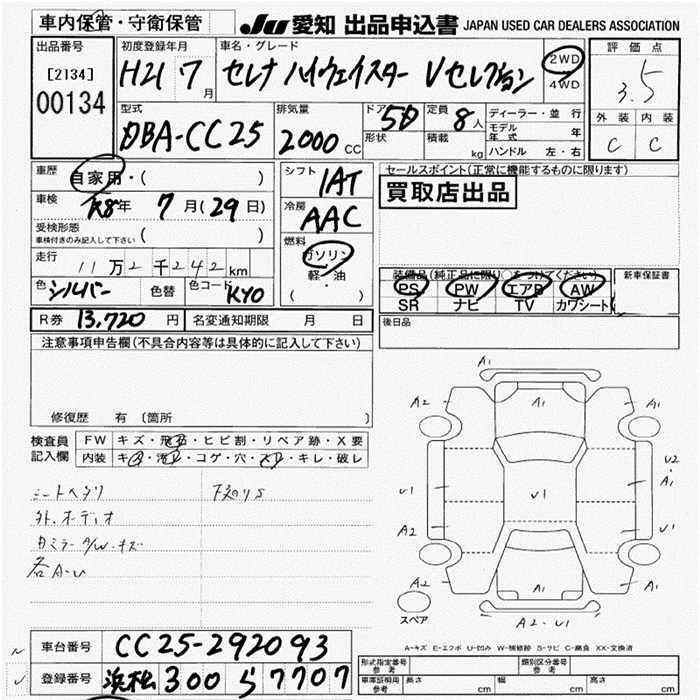 車内保管・守衛保管
JU 愛知 出品申込書 JAPAN USED CAR DEALERS ASSOCIATION
出品番号
[2134]
00134
初度登録年月
H21 7月
車名・グレード
セレナ ハイウェイスター Vセレクション
2WD
4WD
評価点
3.5
外装 内装
C C
型式
DBA-CC25
排気量
2000 CC
ドア 5D
形状
定員 8人
積載 kg
ディーラー・並行
モデル年式 年
ハンドル 左・右
車歴 自家用・( )
車検 R8年 7月(29日)
受検形態
車検付きのみ記入して下さい ( )
走行 11万2千242km
色 シルバー 色替 色コード KY0
シフト IAT
冷房 AAC
燃料
ガソリン
軽・油
( )
セールスポイント(正常に機能するものに限ります)
買取店出品
装備品(純正品に限り○をつけてください)
PS PW エアB AW
SR ナビ TV カワシート
新車保証書
後日品
R券 13,720円 名変通知期限 月 日
注意事項申告欄(不具合内容等は具体的に記入して下さい)
修復歴 有 〔箇所
検査員記入欄
FW キズ・飛石・ヒビ割・リペア跡・X要
内装 キズ・汚れ・コゲ・穴・スレ・キレ・破レ
シートヘタリ
外.オーディオ
カミラー A/W.キズ
各A-U
下廻りS
A1
A2 A1 A1
U2
A1
U1 U1
A2 U1
A2 A1 A1
スペア
A2-U1
A-キズ E-エクボ U-凹み W-補修跡 S-サビ C-腐食 XX-交換済
車台番号 CC25-292093
登録番号 浜松 300 ら 7707
形式指定番号 参考
類別区分番号 参考
車庫証明 参考 長さ cm 幅 cm 高さ cm